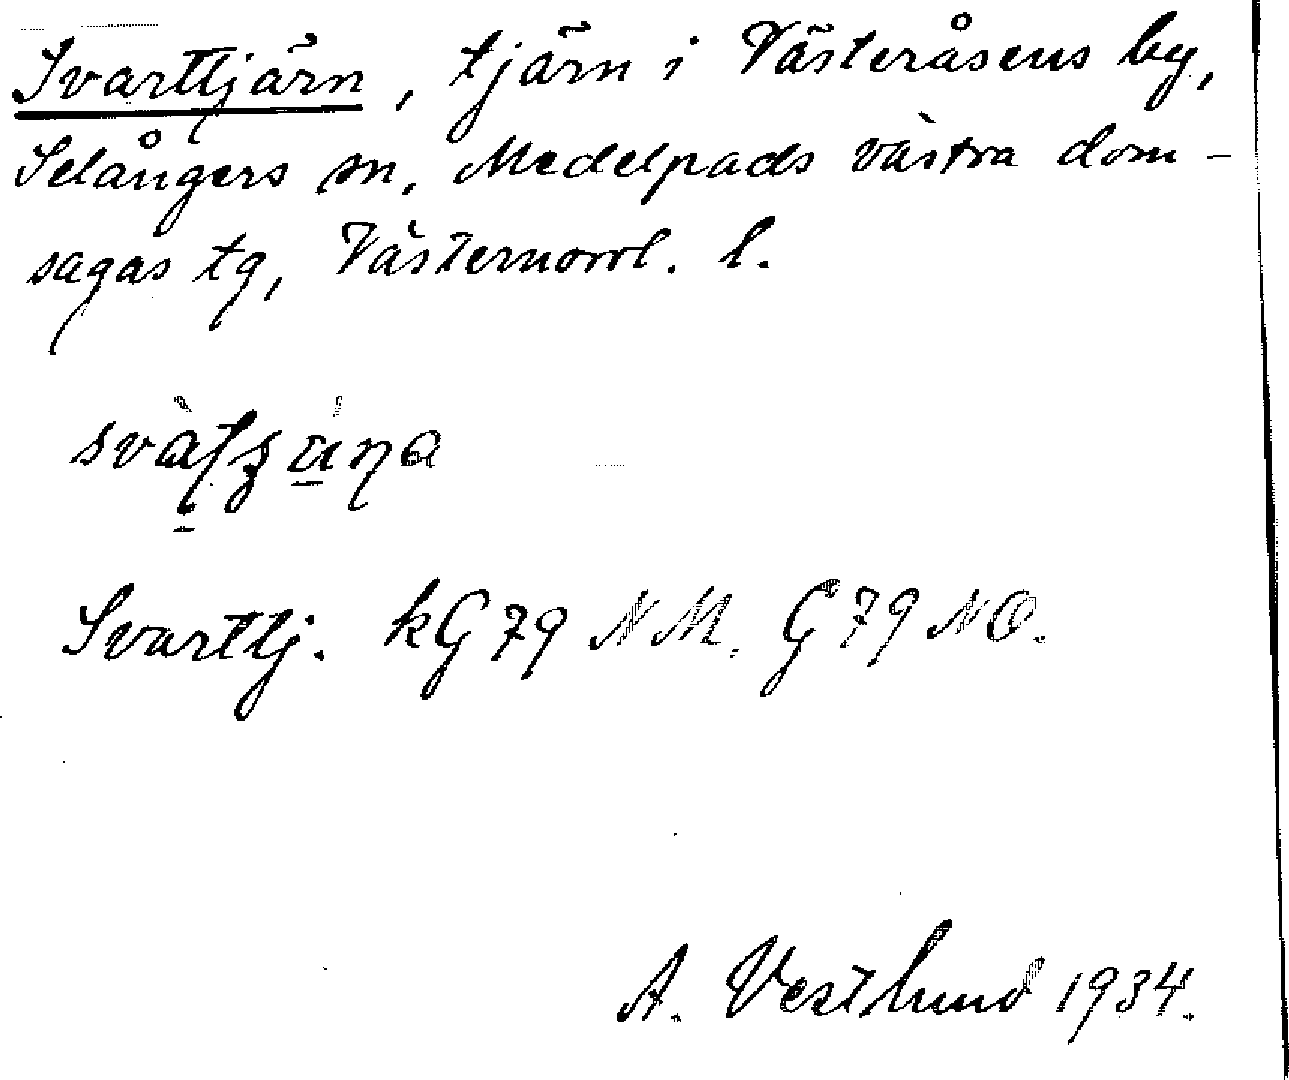 Svarttjärn, tjärn i Västeråsens by,
Selångers sn, Medelpads västra dom-
sagas tg, Västernorrl. l.
Svarttj. kG79 NM. G79 NO.
A. Vestlund 1934.